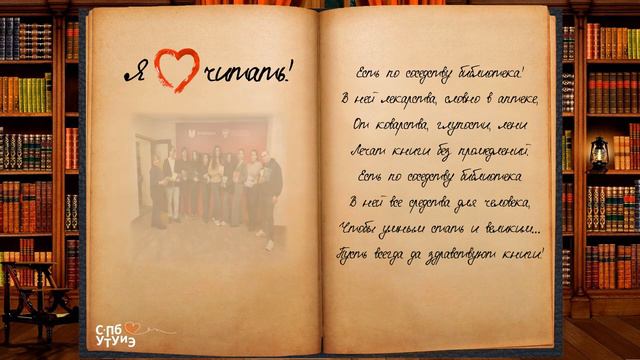 Я читать!
Есть по соседству библиотека!
В ней лекарства, словно в аптеке,
От коварства, глупости, лени
Лечат книги без промедлений.
Есть по соседству библиотека
В ней все средства для человека,
Чтобы умным стать и великим...
Пусть всегда да здравствуют книги!
СПб
УТУиЭ